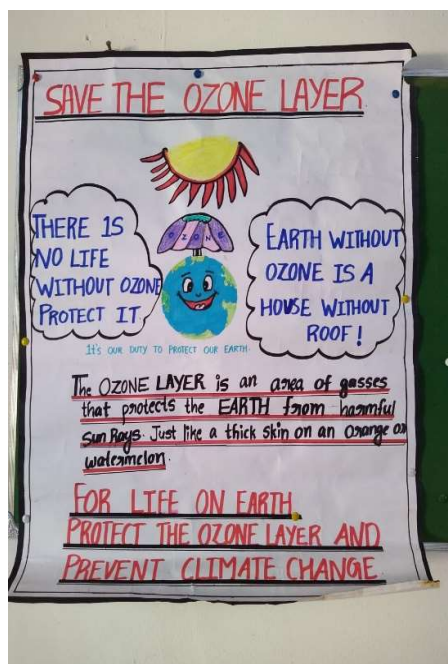 SAVE THE OZONE LAYER
OZON
THERE IS
NO LIFE
WITHOUT OZONE
PROTECT IT
EARTH WITHOUT
OZONE IS A
HOUSE WITHOUT
ROOF!
It's OUR DUTY TO PROTECT OUR EARTH.
The OZONE LAYER is an area of gasses
that protects the EARTH from harmful
Sun Rays. Just like a thick skin on an orange or
watermelon.
FOR LIFE ON EARTH
PROTECT THE OZONE LAYER AND
PREVENT CLIMATE CHANGE